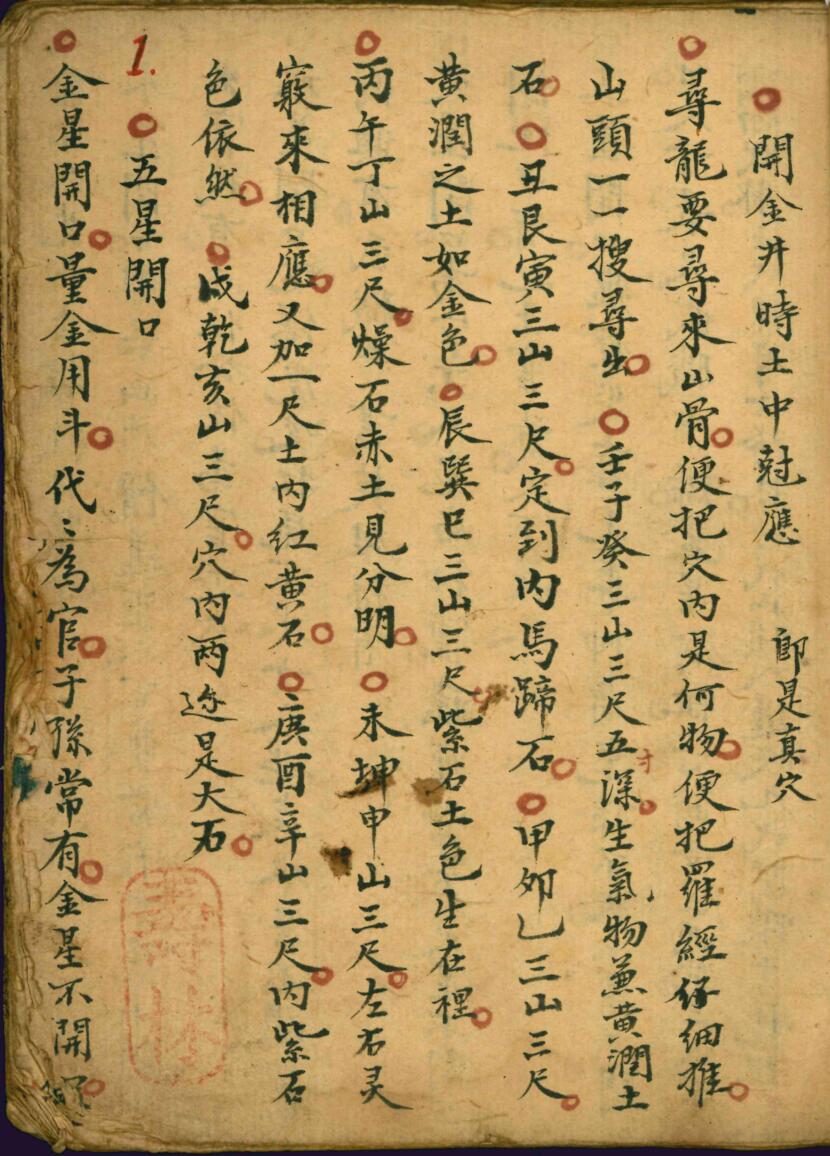 開金井時土中尅應 即是真穴
尋龍要尋來山骨便把穴內是何物便把羅經仔細推
山頭一一搜尋出壬子癸三山三尺五深生氣物兼黃潤土
寸
石丑艮寅三山三尺定到內馬蹄石甲卯乙三山三尺
黃潤之土如金色辰巽巳三山三尺紫石土色生在裡
丙午丁山三尺燥石赤土見分明未坤申山三尺左右灵
竅來相應又加一尺土內红黃石庚酉辛山三尺內紫石
色依然戌乾亥山三尺穴內两边是大石
1.
五星開口
金星開口量金用斗代〻為官子孫常有金星不開